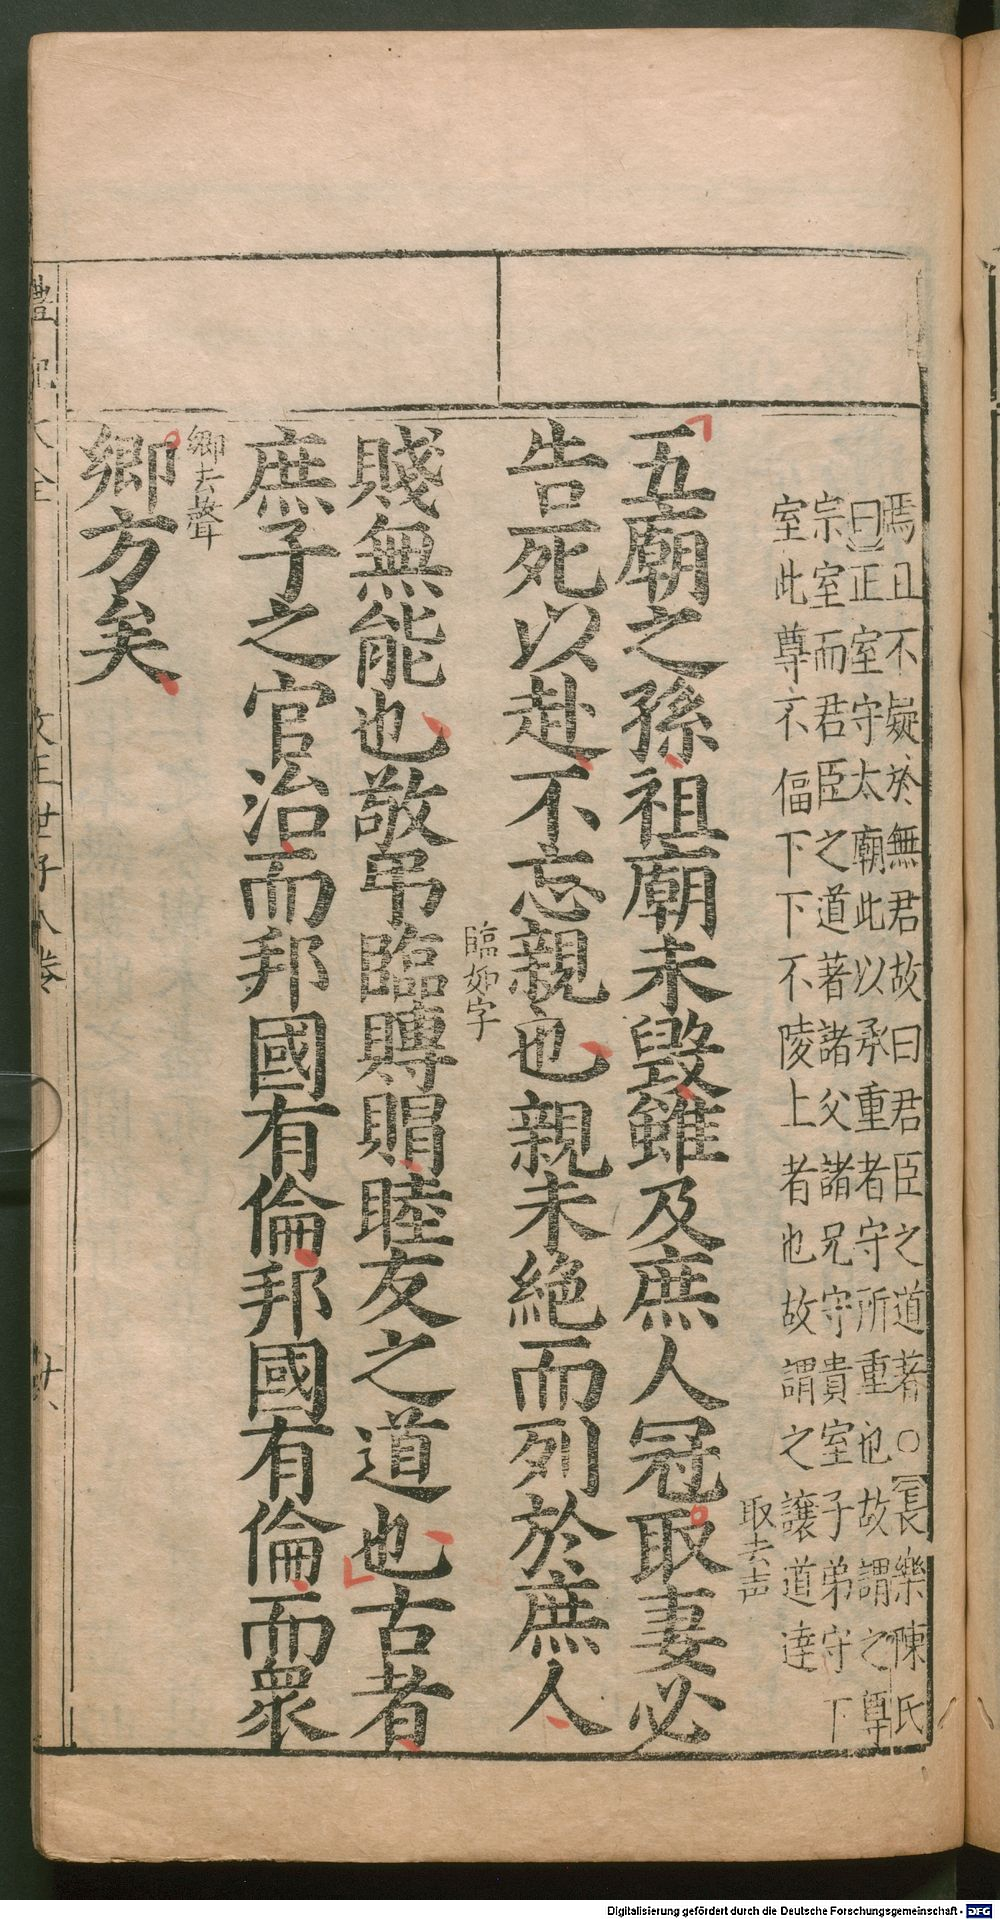 焉且不疑於無君故曰君臣之道著○長樂陳氏
曰正室守太廟此以承重者守所重也故謂之尊
宗室而君臣之道著諸父諸兄守貴室子弟守下
室此尊不偪下下不陵上者也故謂之讓道達
取去声
五廟之孫祖廟未毀雖及庶人冠取妻必
告死以赴不忘親也親未絕而列於庶人
臨如字
賤無能也敬弔臨賻賵睦友之道也古者
庶子之官治而邦國有倫邦國有倫而眾
鄉去聲
鄉方矣
禮記大全
文王世子八卷
廿八
Digitalisierung gefördert durch die Deutsche Forschungsgemeinschaft - DFG